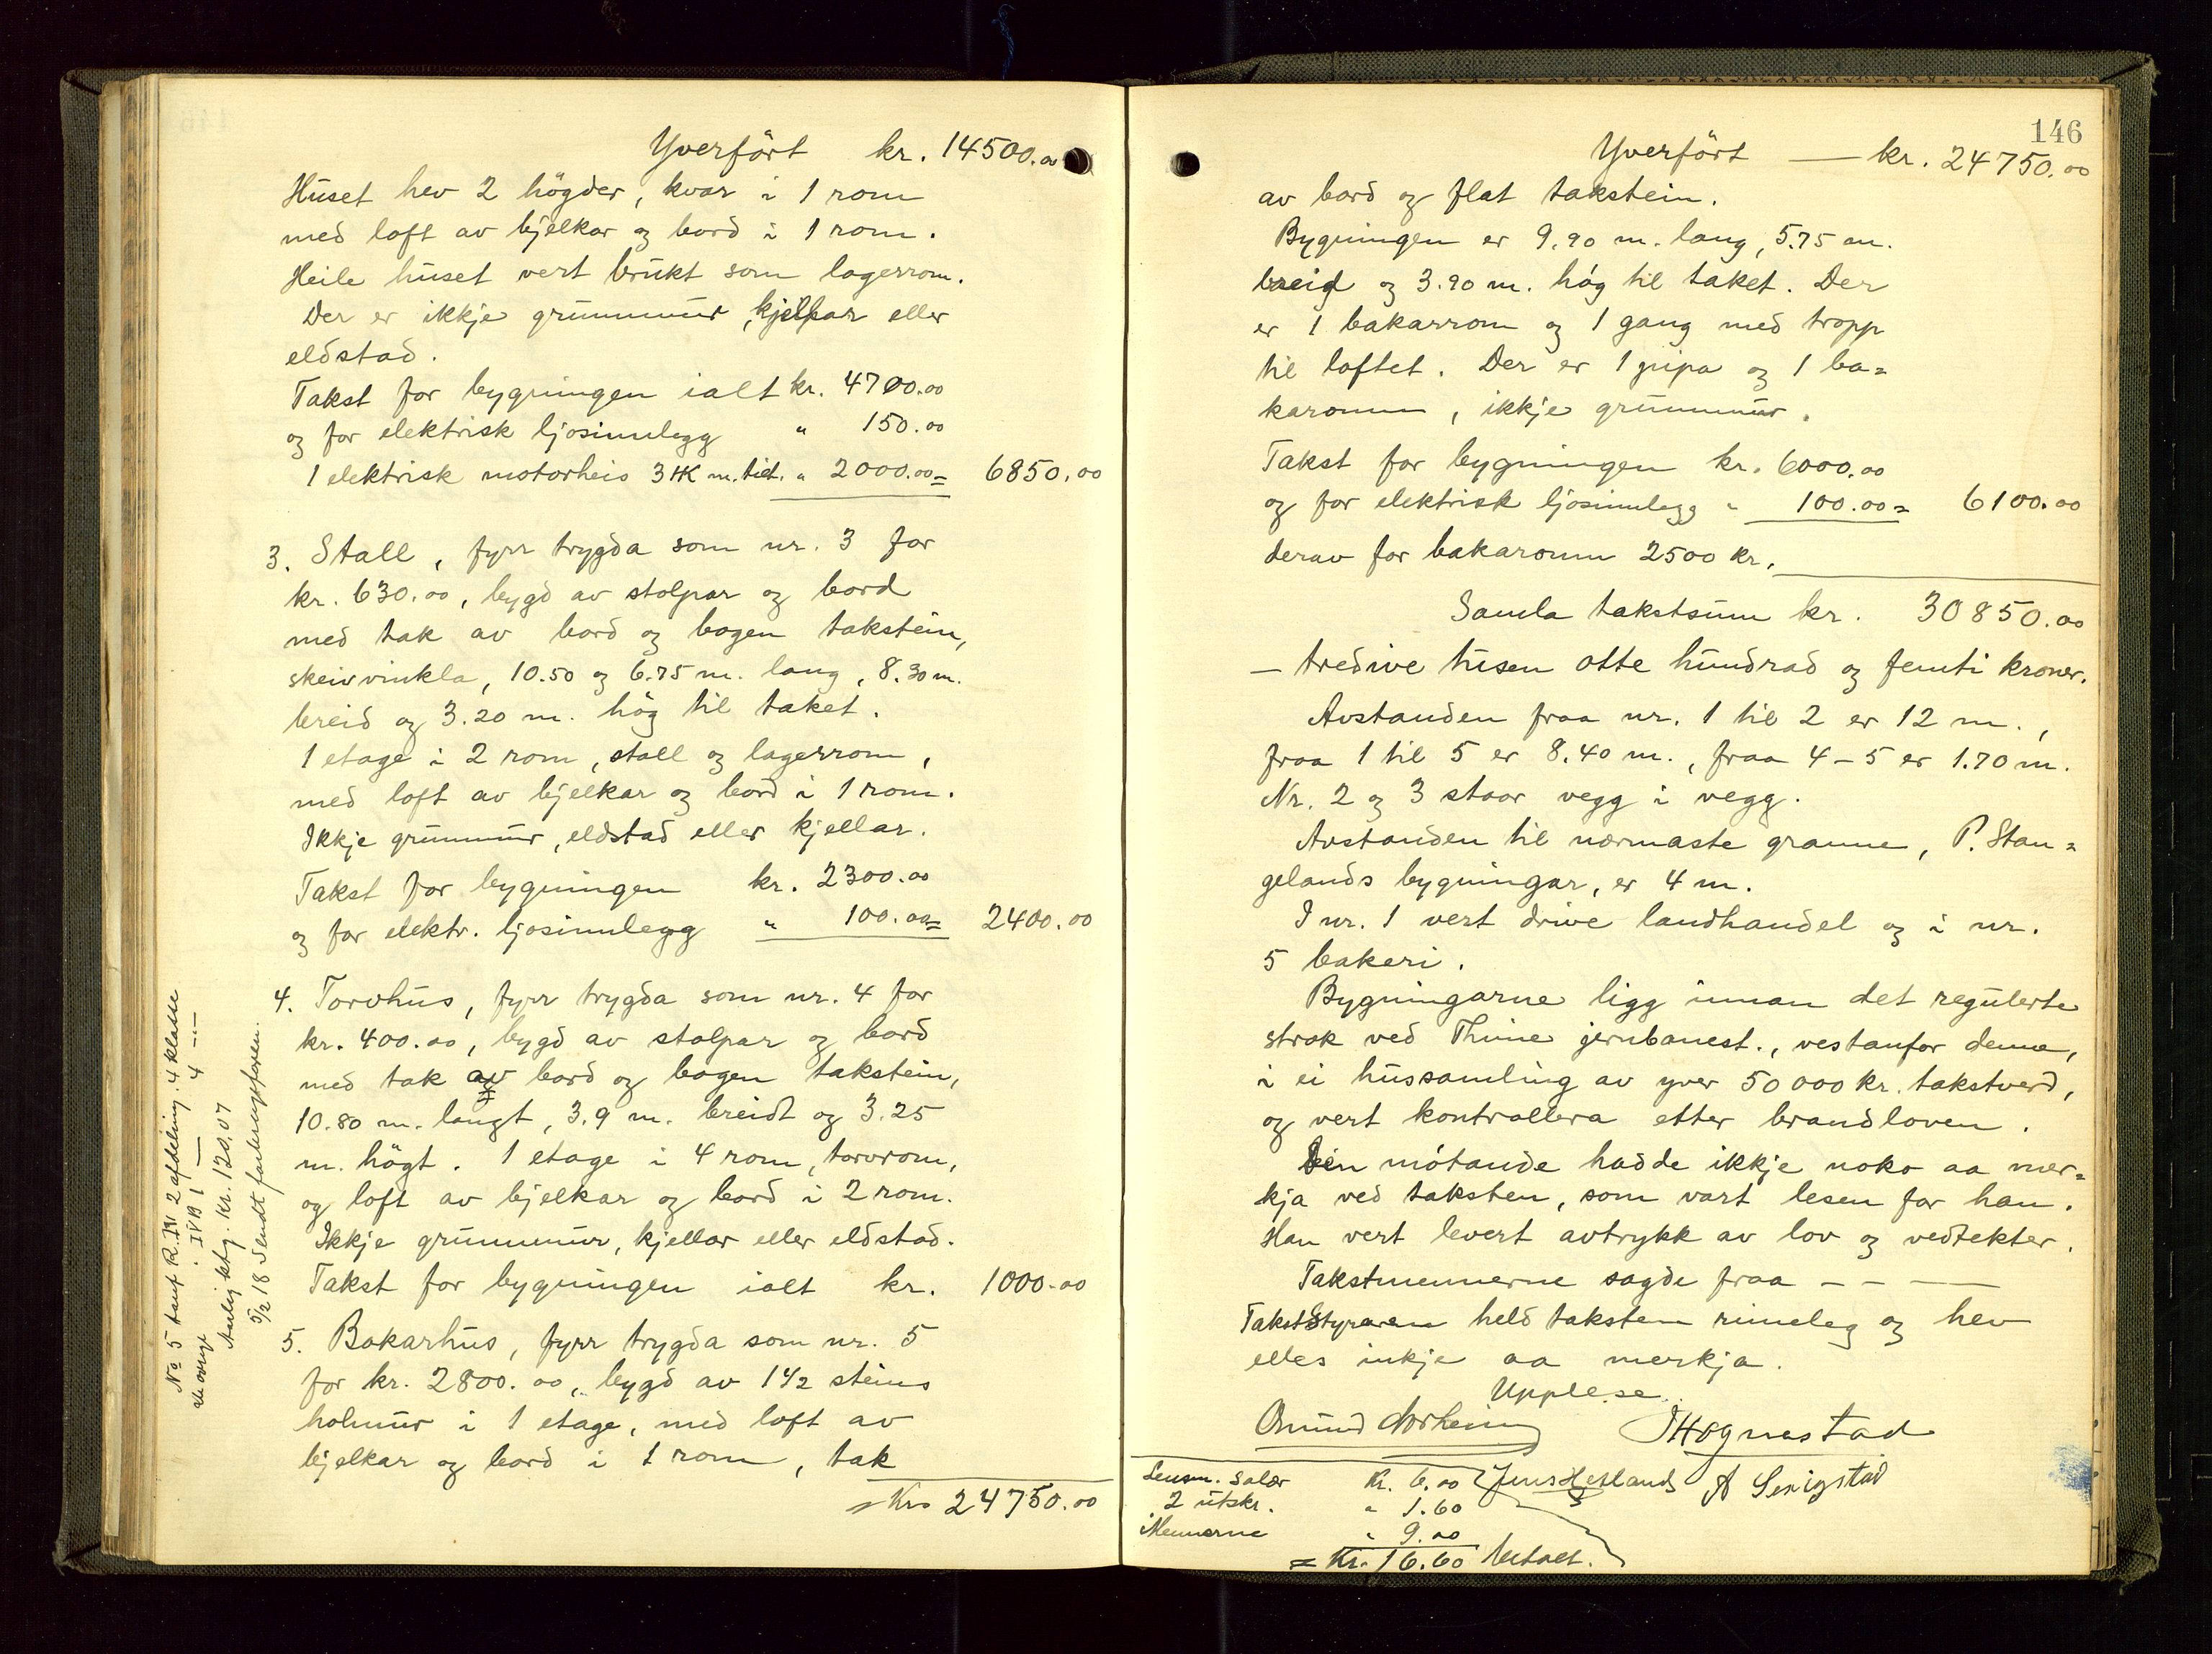 Yverfört kr. 14500.00
Huset hev 2 högder, kvar i 1 rom
med loft av bjelkar og bord i 1 rom.
Heile huset vert brukt som lagerrom.
Der er ikkje grunnmur, kjellar eller
eldstad.
Takst for bygningen ialt kr. 4700.00
og for elektrisk ljosinnlegg " 150.00
1 elektrisk motorheis 3 HK m. " 2000.00 = 6850.00
3. Stall, fyrr trygda som nr. 3 for
kr. 630.00, bygd av stolpar og bord
med tak av bord og bogen takstein,
skeivvinkla, 10.50 og 6.75 m. lang, 8.30 m.
breid og 3.20 m. høg til taket.
1 etage i 2 rom, stall og lagerrom,
med loft av bjelkar og bord i 1 rom.
Ikkje grunnmur, eldstad eller kjellar.
Takst for bygningen kr. 2300.00
og for elektr. ljosinnlegg " 100.00 = 2400.00
4. Torvhus, fyrr trygda som nr. 4 for
kr. 400.00, bygd av stolpar og bord
med tak av bord og bogen takstein,
10.80 m. langt, 3.9 m. breidt og 3.25
m. högt. 1 etage i 4 rom, torvrom,
og loft av bjelkar og bord i 2 rom.
Ikkje grunnmur, kjellar eller eldstad.
Takst for bygningen ialt kr. 1000.00
5. Bakarhus, fyrr trygda som nr. 5
for kr. 2800.00, bygd av 1 1/2 steins
holmur i 1 etage, med loft av
bjelkar og bord i 1 rom, tak
Kr. 24750.00
No 5 R. IV 2 afdeling 4 klasse
alle övrige IV B 1 — 4 —
Aarlig ktg. Kr. 120.07
5/2 18 Sendt
146
Yverfört — kr. 24750.00
av bord og flat takstein.
Bygningen er 9.90 m. lang, 5.75 m.
breid og 3.90 m. høg til taket. Der
er 1 bakarrom og 1 gang med tropp
til loftet. Der er 1 pipa og 1 ba=
karomn, ikkje grunnmur.
Takst for bygningen kr. 6000.00
og for elektrisk ljosinnlegg " 100.00 = 6100.00
derav for bakaromn 2500 kr.
Samla takstsum kr. 30850.00
— tredive tusen otte hundrad og femti kroner.
Avstanden fraa nr. 1 til 2 er 12 m.,
fraa 1 til 5 er 8.40 m., fraa 4 – 5 er 1.70 m.
Nr. 2 og 3 staar vegg i vegg.
Avstanden til nærmaste granne, P. Stan=
gelands bygningar, er 4 m.
I nr. 1 vert drive landhandel og i nr.
5 bakeri.
Bygningarne ligg innan det regulerte
strok ved Thime jernbanest., vestanfor denne,
i ei hussamling av yver 50 000 kr. takstverd,
og vert kontrollera etter brandloven.
Den mötande hadde ikkje noko aa mer=
kja ved taksten, som vart lesen for han.
Han vert levert avtrykk av lov og vedtekter.
Takstmennerne sagde fraa – – —
Takststyraren held taksten rimeleg og hev
elles inkje aa merkja.
Upplese.
Omund Norheim Hognestad
Lensm. salær Kr. 6.00 Jens Hetland A Serigstad
2 utskr. " 1.60
Mennerne " 9.00
= Kr. 16.60 betalt.